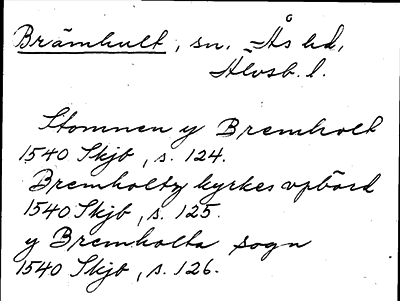 Brämhult, sn. Ås hd,
Älvsb. l.
Stomnen y Bremholt
1540 Skjb, s. 124.
Bremholtz kyrkes vpbörd
1540 Skjb, s. 125.
y Bremholta sogn
1540 Skjb, s. 126.